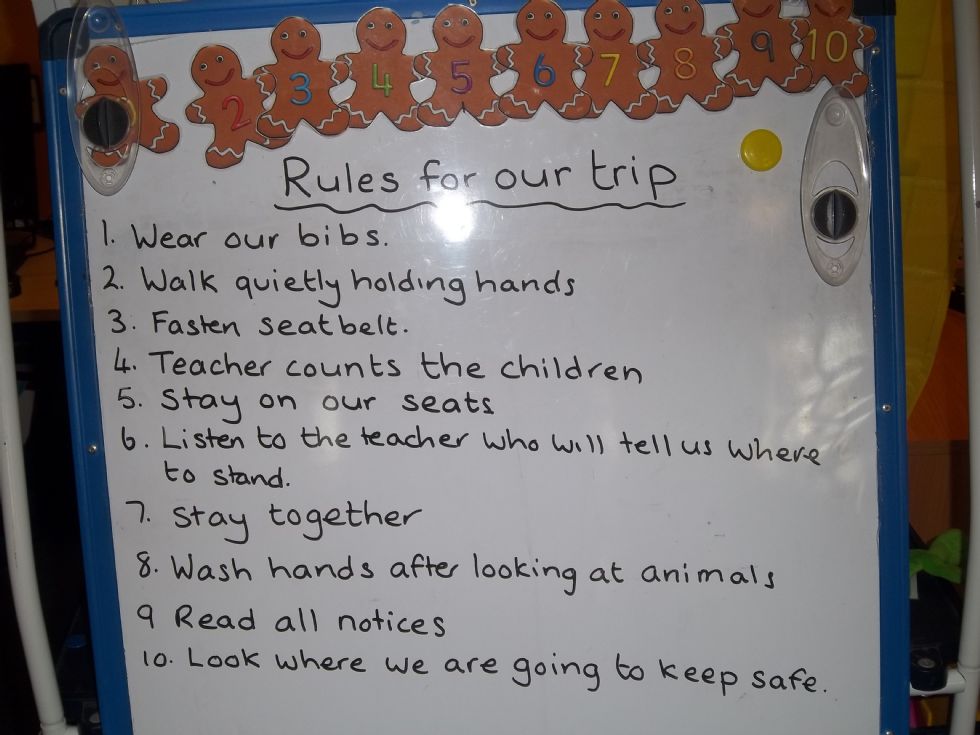 2 3 4 5 6 7 8 9 10
Rules for our trip
1. Wear our bibs.
2. Walk quietly holding hands
3. Fasten seat belt.
4. Teacher counts the children
5. Stay on our seats
6. Listen to the teacher who will tell us where
to stand.
7. Stay together
8. Wash hands after looking at animals
9 Read all notices
10. Look where we are going to keep safe.